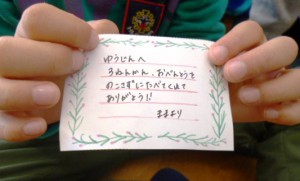 ゆうじんへ
３ねんかん、おべんとうを
のこさずにたべてくれて
ありがとう!!
ままより